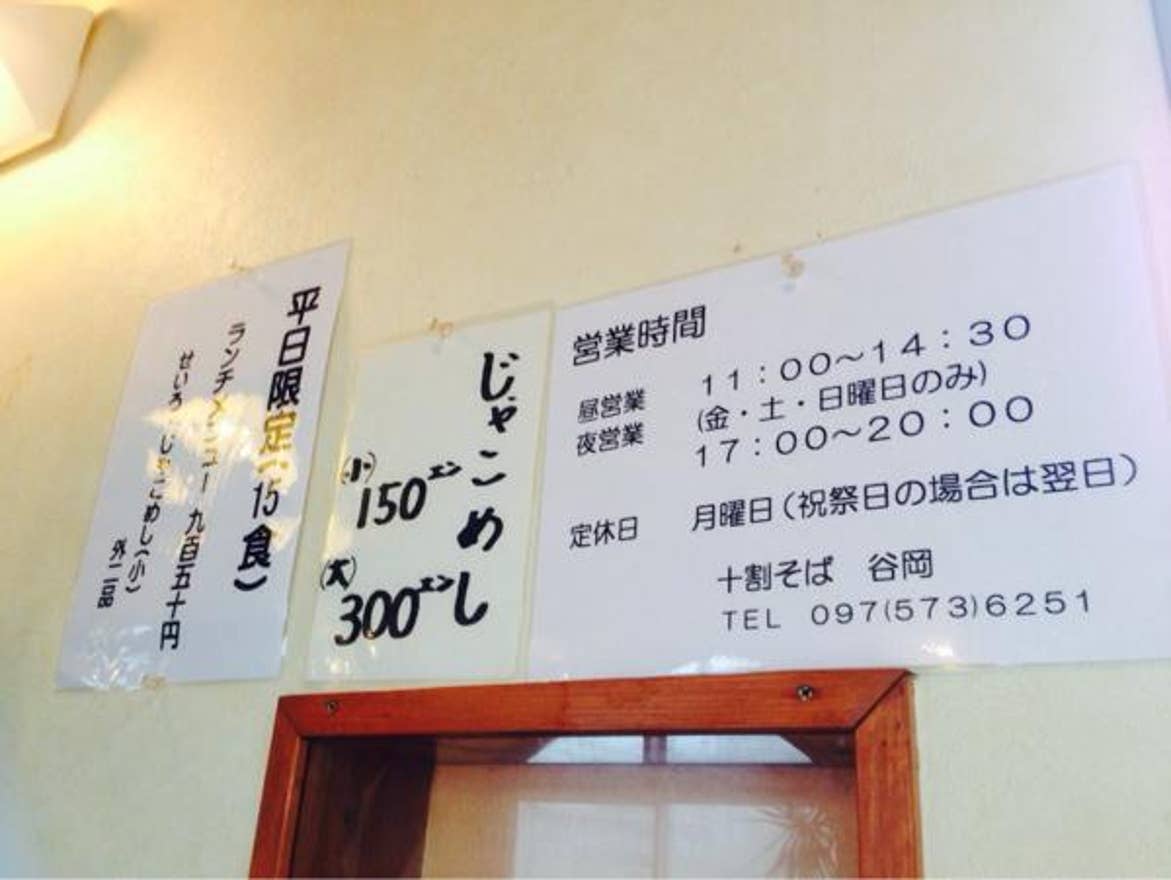 営業時間
昼営業 11:00~14:30
(金・土・日曜日のみ)
夜営業 17:00~20:00
定休日 月曜日(祝祭日の場合は翌日)
十割そば 谷岡
TEL 097(573)6251
じゃこめし
(小) 150エン
(大) 300エン
平日限定(15食)
ランチメニュー 九百五十円
せいろ・じゃこめし(小)
外二品